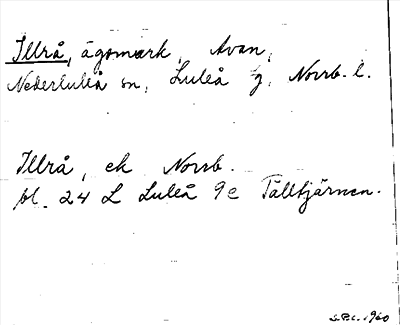 Illrå, ägomark, Avan,
Nederluleå sn, Luleå g, Norrb. l.
Illrå, ek Norrb.
bl. 24 L Luleå 9c Tälltjärnen.
S.P.L. 1960